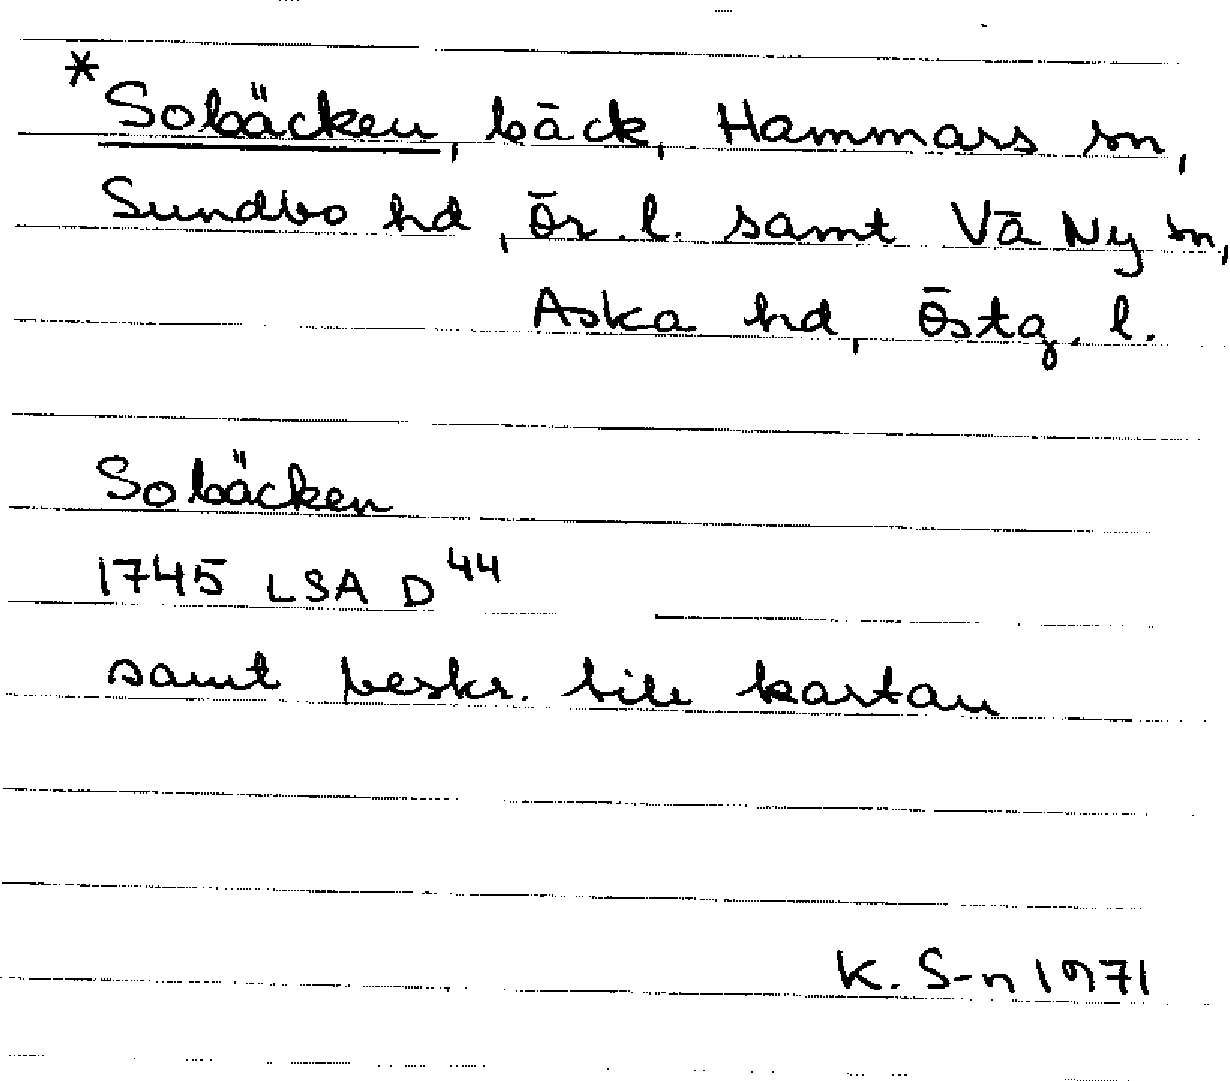 *Sobäcken, bäck, Hammars sn,
Sundbo hd, Ör. l. samt Vä Ny sn,
Aska hd, Östg. l.
Sobäcken
1745 LSA D⁴⁴
samt beskr. till kartan
K. S-n 1971